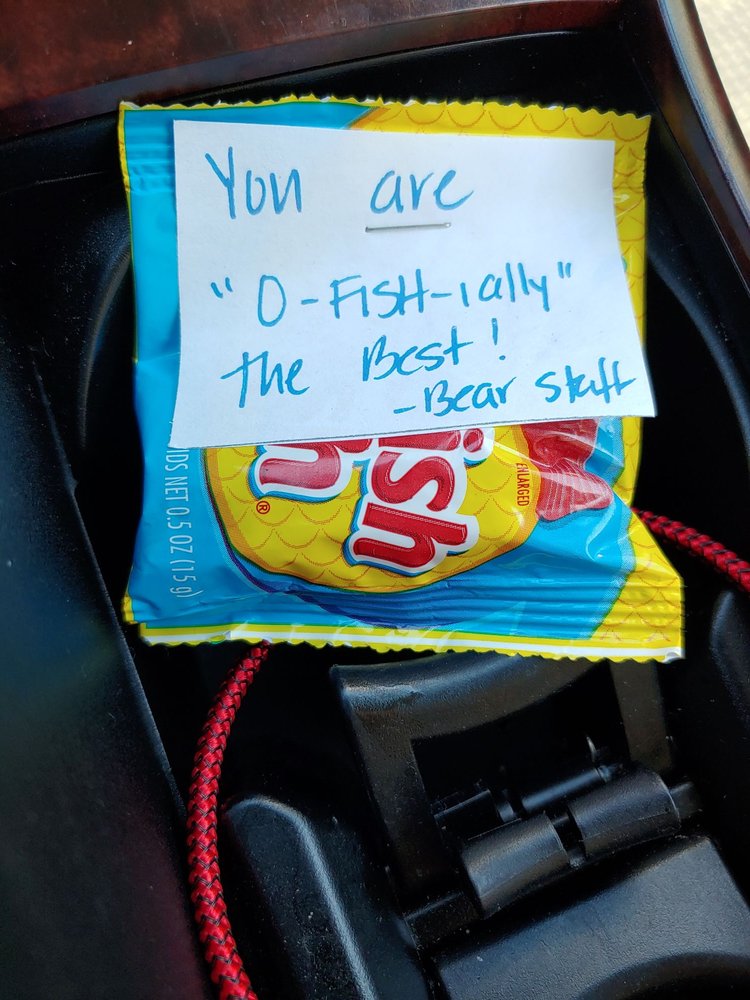 You are
"O-FISH-ially"
the Best!
-Bear Staff
ish
h®
ENLARGED
NET 0.5 OZ (15 g)